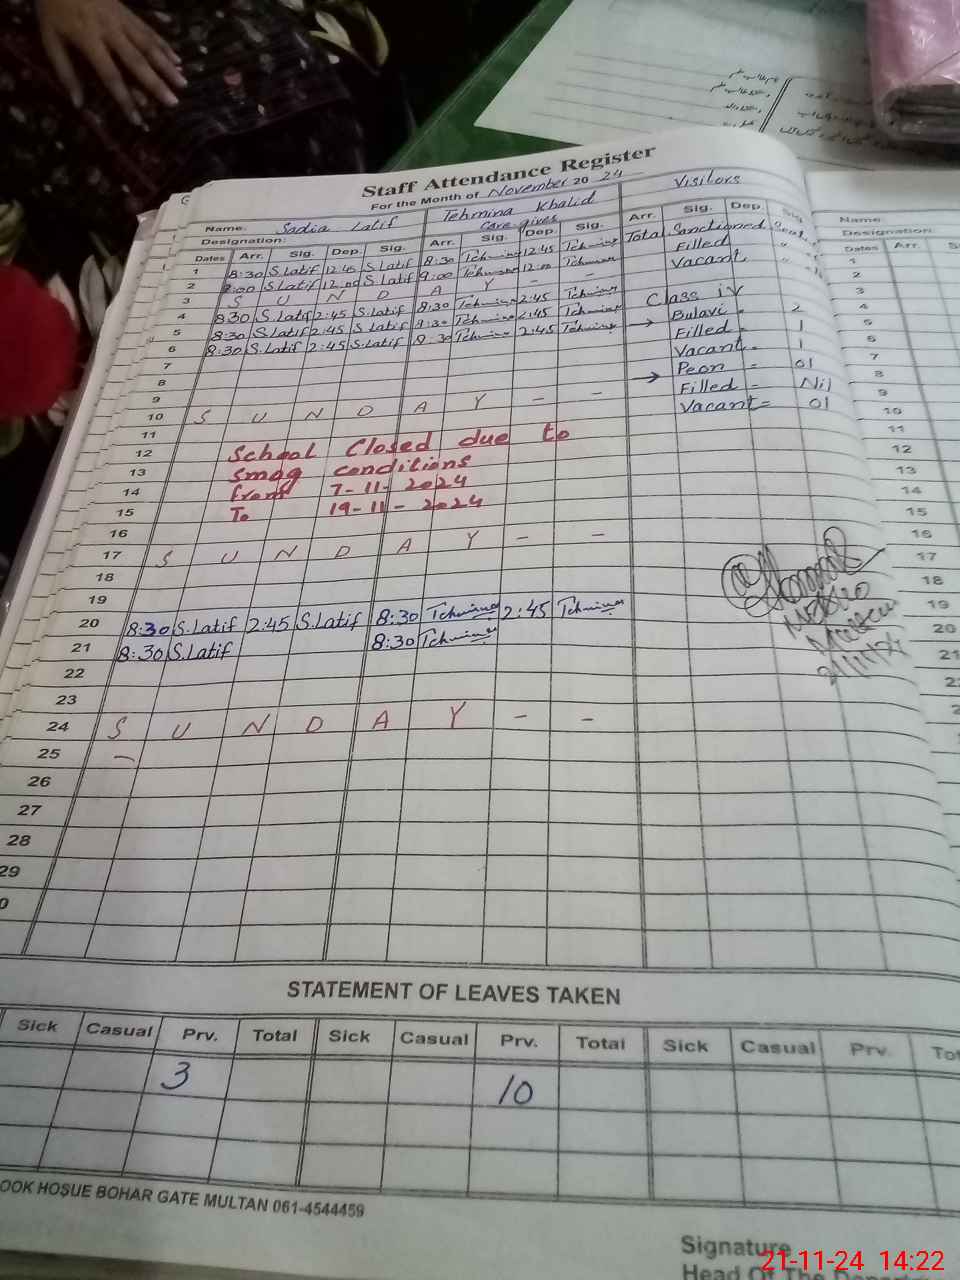 Staff Attendance Register
For the Month of November 20 24
Name: Sadia Latif Tehmina Khalid Visitors
Designation: Care giver
Dates Arr. Sig. Dep. Sig. Arr. Sig. Dep. Sig. Arr. Sig. Dep. Sig
1 8:30 S.Latif 12:45 S.Latif 8:30 Tehmina 12:45 Tehmina Total Sanctioned
2 8:00 S.Latif 12:00 S.Latif 8:00 Tehmina 12:00 Tehmina Filled
3 S U N D A Y - - Vacant
4 8:30 S.Latif 2:45 S.Latif 8:30 Tehmina 2:45 Tehmina Class IV
5 8:30 S.Latif 2:45 S.Latif 8:30 Tehmina 2:45 Tehmina → Bulavi = 2
6 8:30 S.Latif 2:45 S.Latif 8:30 Tehmina 2:45 Tehmina Filled = 1
7 Vacant = 1
8 → Peon = 01
9 Filled = Nil
10 S U N D A Y - - Vacant = 01
11
12 School Closed due to
13 smog conditions
14 from 7-11-2024
15 To 19-11-2024
16
17 S U N D A Y - -
18
19
20 8:30 S.Latif 2:45 S.Latif 8:30 Tehmina 2:45 Tehmina
21 8:30 S.Latif 8:30 Tehmina
22
23
24 S U N D A Y - -
25 -
26
27
28
29
0
Name:
Designation:
Dates Arr. S
1
2
3
4
5
6
7
8
9
10
11
12
13
14
15
16
17
18
19
20
21
2
STATEMENT OF LEAVES TAKEN
Sick Casual Prv. Total Sick Casual Prv. Total Sick Casual Prv. Tot
3 10
OOK HOSUE BOHAR GATE MULTAN 061-4544459
Signature
Head Of The
21-11-24 14:22